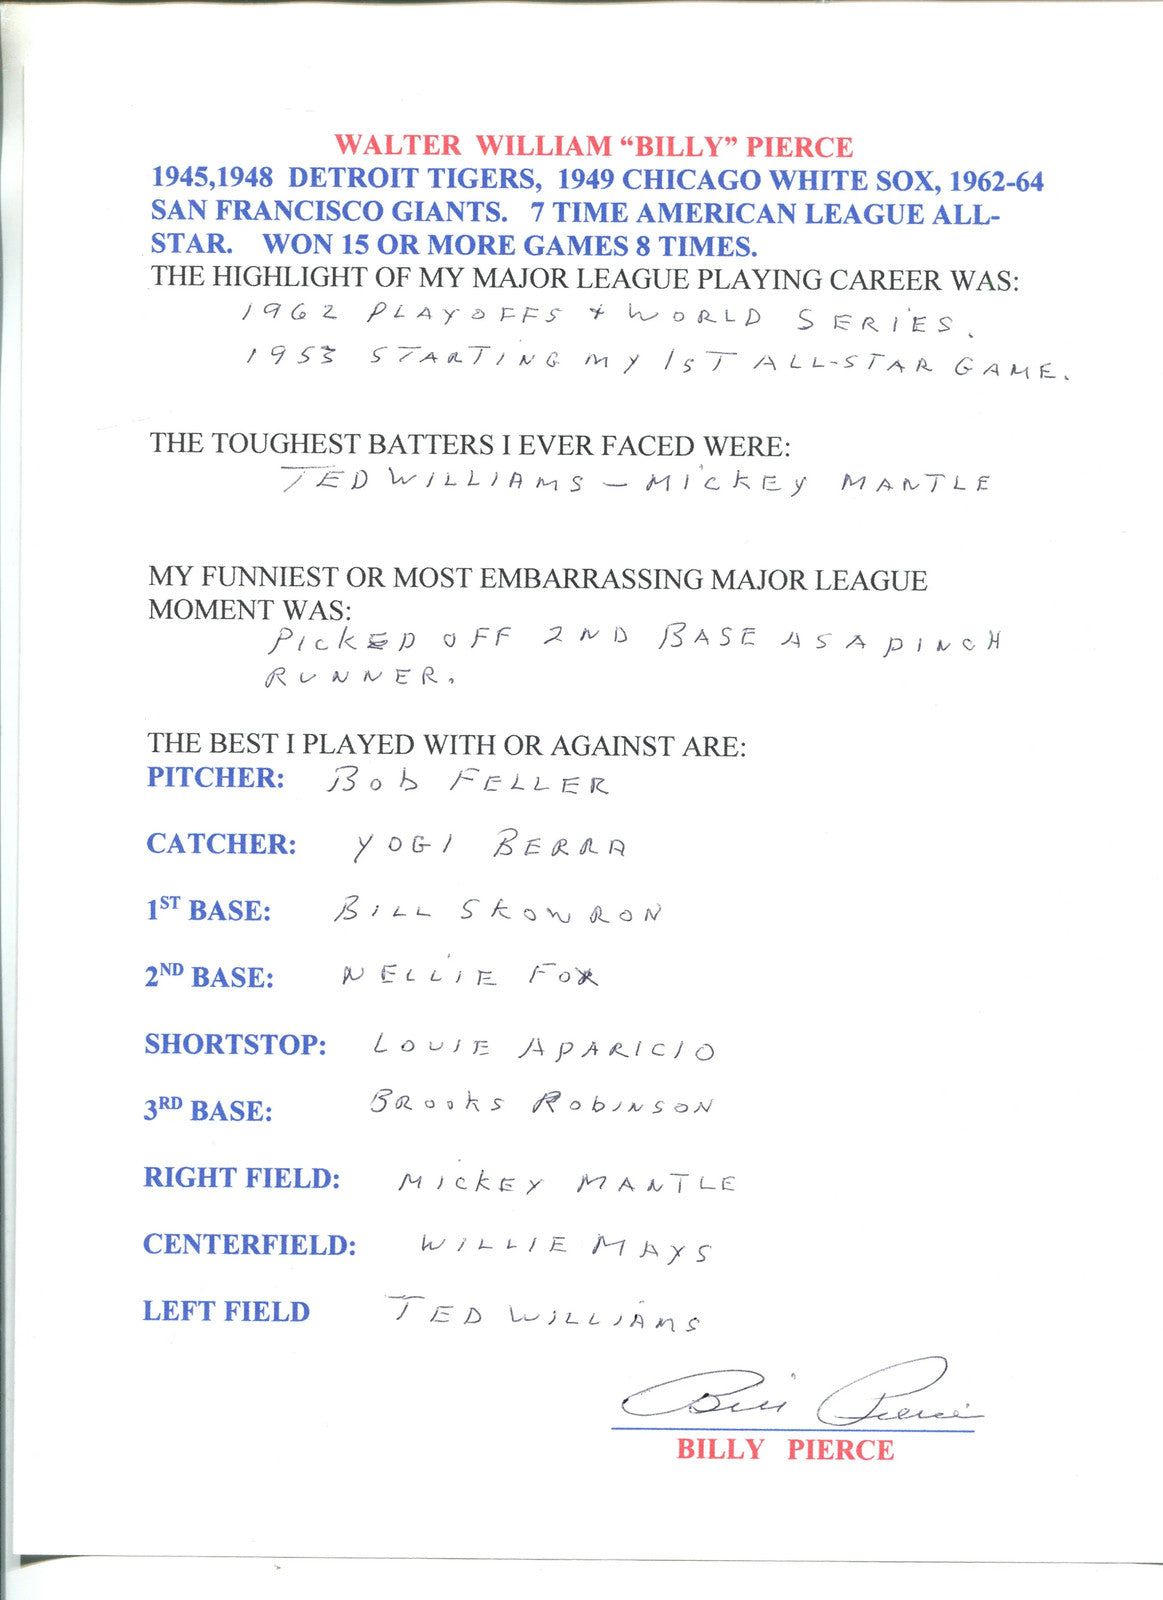 WALTER WILLIAM “BILLY” PIERCE
1945,1948 DETROIT TIGERS, 1949 CHICAGO WHITE SOX, 1962-64
SAN FRANCISCO GIANTS. 7 TIME AMERICAN LEAGUE ALL-
STAR. WON 15 OR MORE GAMES 8 TIMES.
THE HIGHLIGHT OF MY MAJOR LEAGUE PLAYING CAREER WAS:
1962 PLAYOFFS + WORLD SERIES.
1953 STARTING MY 1ST ALL-STAR GAME.
THE TOUGHEST BATTERS I EVER FACED WERE:
TED WILLIAMS - MICKEY MANTLE
MY FUNNIEST OR MOST EMBARRASSING MAJOR LEAGUE
MOMENT WAS:
PICKED OFF 2ND BASE AS A PINCH
RUNNER.
THE BEST I PLAYED WITH OR AGAINST ARE:
PITCHER: BOB FELLER
CATCHER: YOGI BERRA
1ST BASE: BILL SKOWRON
2ND BASE: NELLIE FOX
SHORTSTOP: LOUIE APARICIO
3RD BASE: BROOKS ROBINSON
RIGHT FIELD: MICKEY MANTLE
CENTERFIELD: WILLIE MAYS
LEFT FIELD TED WILLIAMS
Bill Pierce
BILLY PIERCE